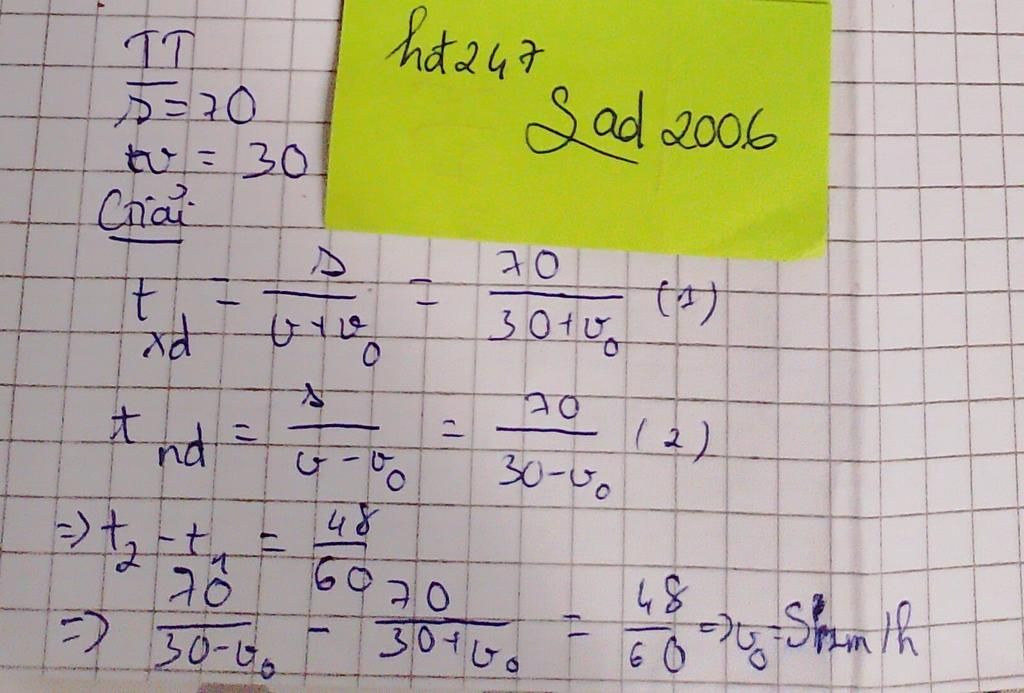 TT
s = 70
v = 30
Giải
hdt247
Sad 2006
t xd = s / (v + v₀) = 70 / (30 + v₀) (1)
t nd = s / (v - v₀) = 70 / (30 - v₀) (2)
=> t₂ - t₁ = 48 / 60
=> 70 / (30 - v₀) - 70 / (30 + v₀) = 48 / 60 => v₀ = 5 km/h